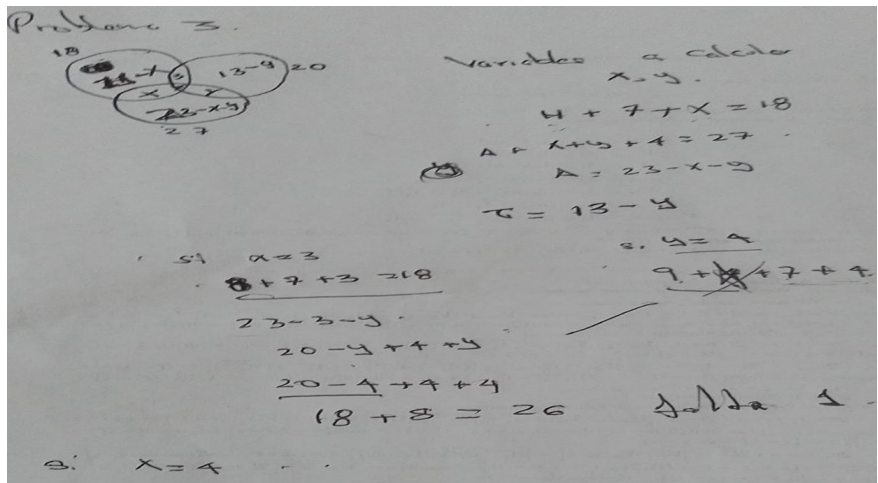 Problema 3.
18
11-x 3 13-y 20
x y
23-x-y
27
Variables a calcular
x, y.
H + 7 + x = 18
A + x+y + 4 = 27
A = 23-x-y
T = 13-y
si x=3
8+7+3 =18
23-3-y
20-y+4+y
20-4+4+4
18+8 = 26 falta 1.
s. y=4
9+4+7+4
si x=4